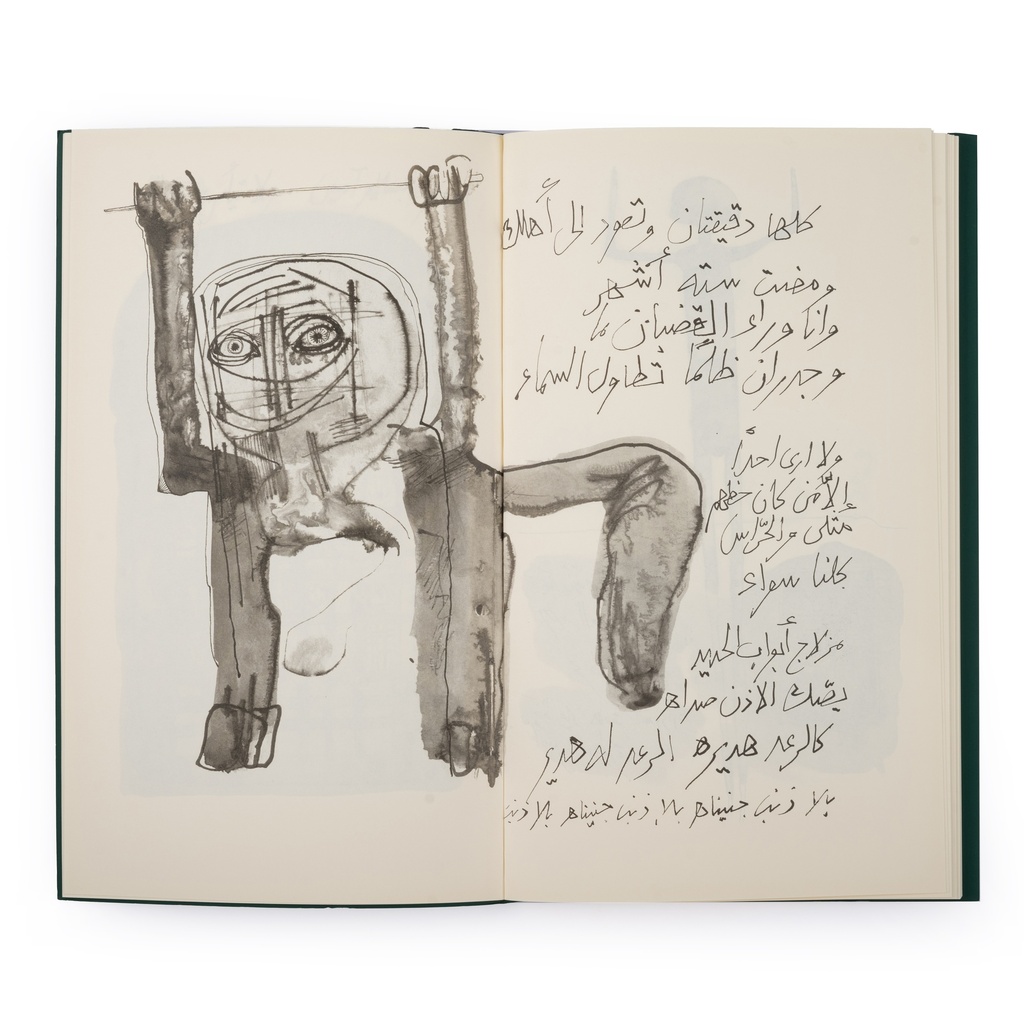 كلها دقيقتان وتعود الى أهلك
ومضت سته أشهر
وانا وراء القضبان ما
وجدران ظالما تطاول السماء
ولا ارى احداً
إلّا من كان حظهم
مثلي والحرّاس
كلنا سواء
مزلاج أبواب الحديد
يصّك الاذن صداها
كالرعد هديره الرعد له هدير
بلا ذنب جنيناه بلا ذنب جنيناه بلا ذنب